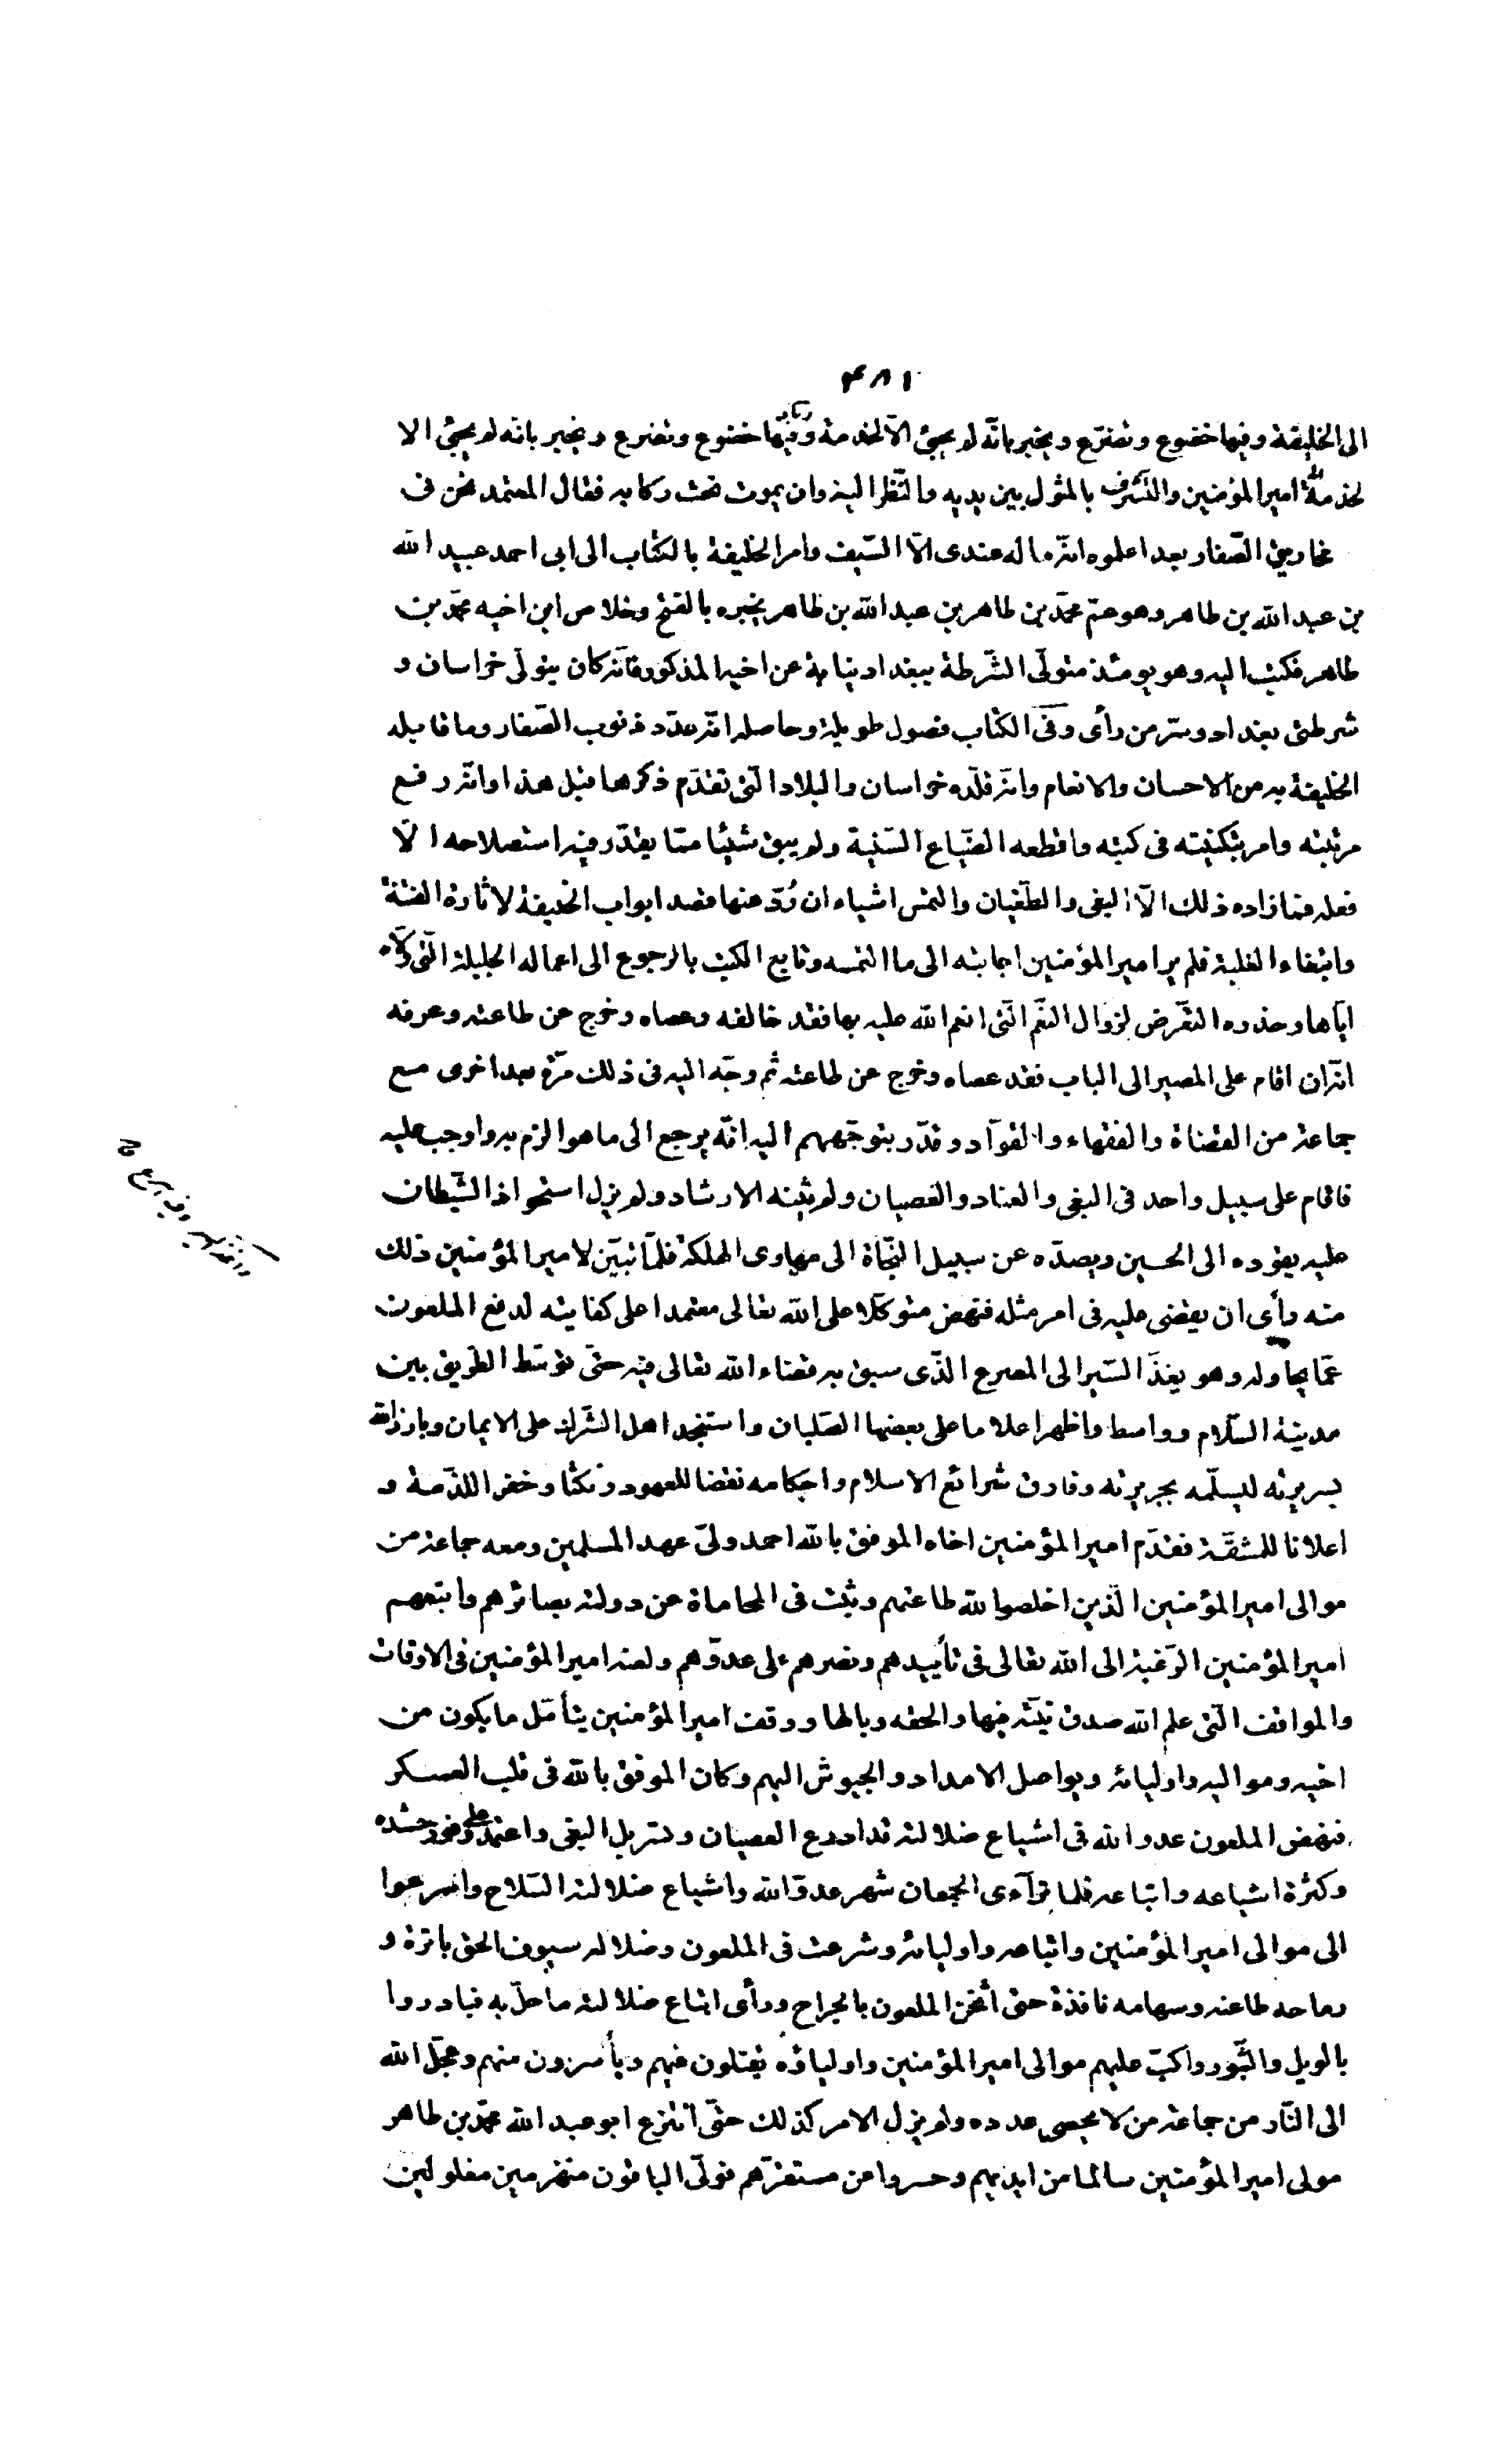 ۴۸۱
الى الخليفة وفيها خضوع وتضرّع ويخبر بانّه لم يجئ الّا لخدمة وفيها خضوع وتضرع ويخبر بانه لم يجئ الا
لخدمة امير المؤمنين والتّشرف بالمثول بين يديه والنّظر اليه وان يموت تحت ركابه فقال المعتمد نحن فى
مخاريق الصّفار بعد اعلموه انّه ما له عندى الّا السّيف وامر الخليفة بالكتاب الى ابى احمد عبيد الله
بن عبد الله بن طاهر وهو عمّ محمّد بن طاهر بن عبد الله بن طاهر يخبره بالفتح وخلاص ابن اخيه محمّد بن
طاهر فكتب اليه وهو يومئذ متولّى الشّرطة ببغداد نيابة عن اخيه المذكور فانّه كان يتولّى خراسان و
شرطتى بغداد وسرّ من رأى وفى الكتاب فصول طويلة وحاصله انّه عدّد ذنوب الصّفار وما قابله
الخليفة به من الاحسان والانعام وانّه قلّده خراسان والبلاد الّتى تقدّم ذكرها قبل هذا وانّه رفع
مرتبته وامر بتكنيته فى كتبه واقطعه الضّياع السّنية ولم يبق شيئا ممّا يقدّر فيه استصلاحه الّا
فعله فما زاده ذلك الّا البغى والطّغيان والتمس اشياء ان رُدّ عنها قصد ابواب الخليفة لاثارة الفتنة
وابتغاء الغلبة فلم ير امير المؤمنين اجابته الى ما التمسه وتابع الكتب بالرجوع الى اعماله الجليلة الّتى ولّاه
ايّاها وحذره التعّرض لزوال النعّم الّتى انعم الله عليه بها فقد خالفه وعصاه وخرج عن طاعته وعرفه
انّه ان اقام على المصير الى الباب فقد عصاه وخرج عن طاعته ثم وجّه اليه فى ذلك مرّة بعد اخرى مع
جماعة من القضاة والفقهاء والقوّاد وقدّر بتوجّههم اليه انّه يرجع الى ما هو الزم به واوجب عليه
فاقام على سبيل واحد فى البغى والعناد والعصيان ولم يثنه الارشاد ولم يزل استحواذ الشّيطان
عليه يقوده الى الحسين ويصدّه عن سبيل النّجاة الى مهاوى الهلكة فلمّا تبيّن لامير المؤمنين ذلك
منه رأى ان يقضى عليه فى امر مثله فنهض متوكّلا على الله تعالى معتمدا على كفايته لدفع الملعون
عمّا يحاوله وهو يغذّ السّير الى المصرع الّذى سبق به قضاء الله تعالى فيه حتّى توسّط الطّريق بين
مدينة السّلام وواسط واظهر اعلاما على بعضها الصّلبان واستنجد اهل الشّرك على الايمان وبارز الله
بسريرته ليسلّمه بجريرته وفارق شرائع الاسلام واحكامه نقضا للعهود ونكثا وخفرا للذّمة و
اعلانا للمشقّة فقدّم امير المؤمنين اخاه الموفق بالله احمد ولىّ عهد المسلمين ومعه جماعة من
موالى امير المؤمنين الّذين اخلصوا لله طاعتهم وثبت فى المحاماة عن دولته بصائرهم واتبعهم
امير المؤمنين الرّغبة الى الله تعالى فى تأييدهم ونصرهم على عدوّهم ولعنه امير المؤمنين فى الاوقات
والمواقف الّتى علم الله صدق نيّته فيها والحقه وبالها ووقف امير المؤمنين يتأمّل ما يكون من
اخيه ومواليه واوليائه ويواصل الامداد والجيوش اليهم وكان الموفق بالله فى قلب العسكر
فنهض الملعون عدو الله فى اشياع ضلالته قد ادرع العصيان وتسربل البغى واعتمد على وفور حشده
وكثرة اشياعه واتباعه فلما ترآءى الجمعان شهر عدوّ الله واشياع ضلالته السّلاح واسرعوا
الى موالى امير المؤمنين واتباعه واوليائه وشرعت فى الملعون وضلاله سيوف الحق باترة و
رماحه طاعنة وسهامه نافذة حتى أثخن الملعون بالجراح ورأى اتباع ضلالته ما حلّ به فبادروا
بالويل والثّبور واكبّ عليهم موالى امير المؤمنين واولياؤه يقتلون فيهم ويأسرون منهم وعجّل الله
الى النّار من جماعته من لا يحصى عدده ولم يزل الامر كذلك حتّى انتزع ابو عبد الله محمّد بن طاهر
مولى امير المؤمنين سالما من ايديهم وحسروا عن مستقرّهم فولّى الباقون منهزمين مفلولين